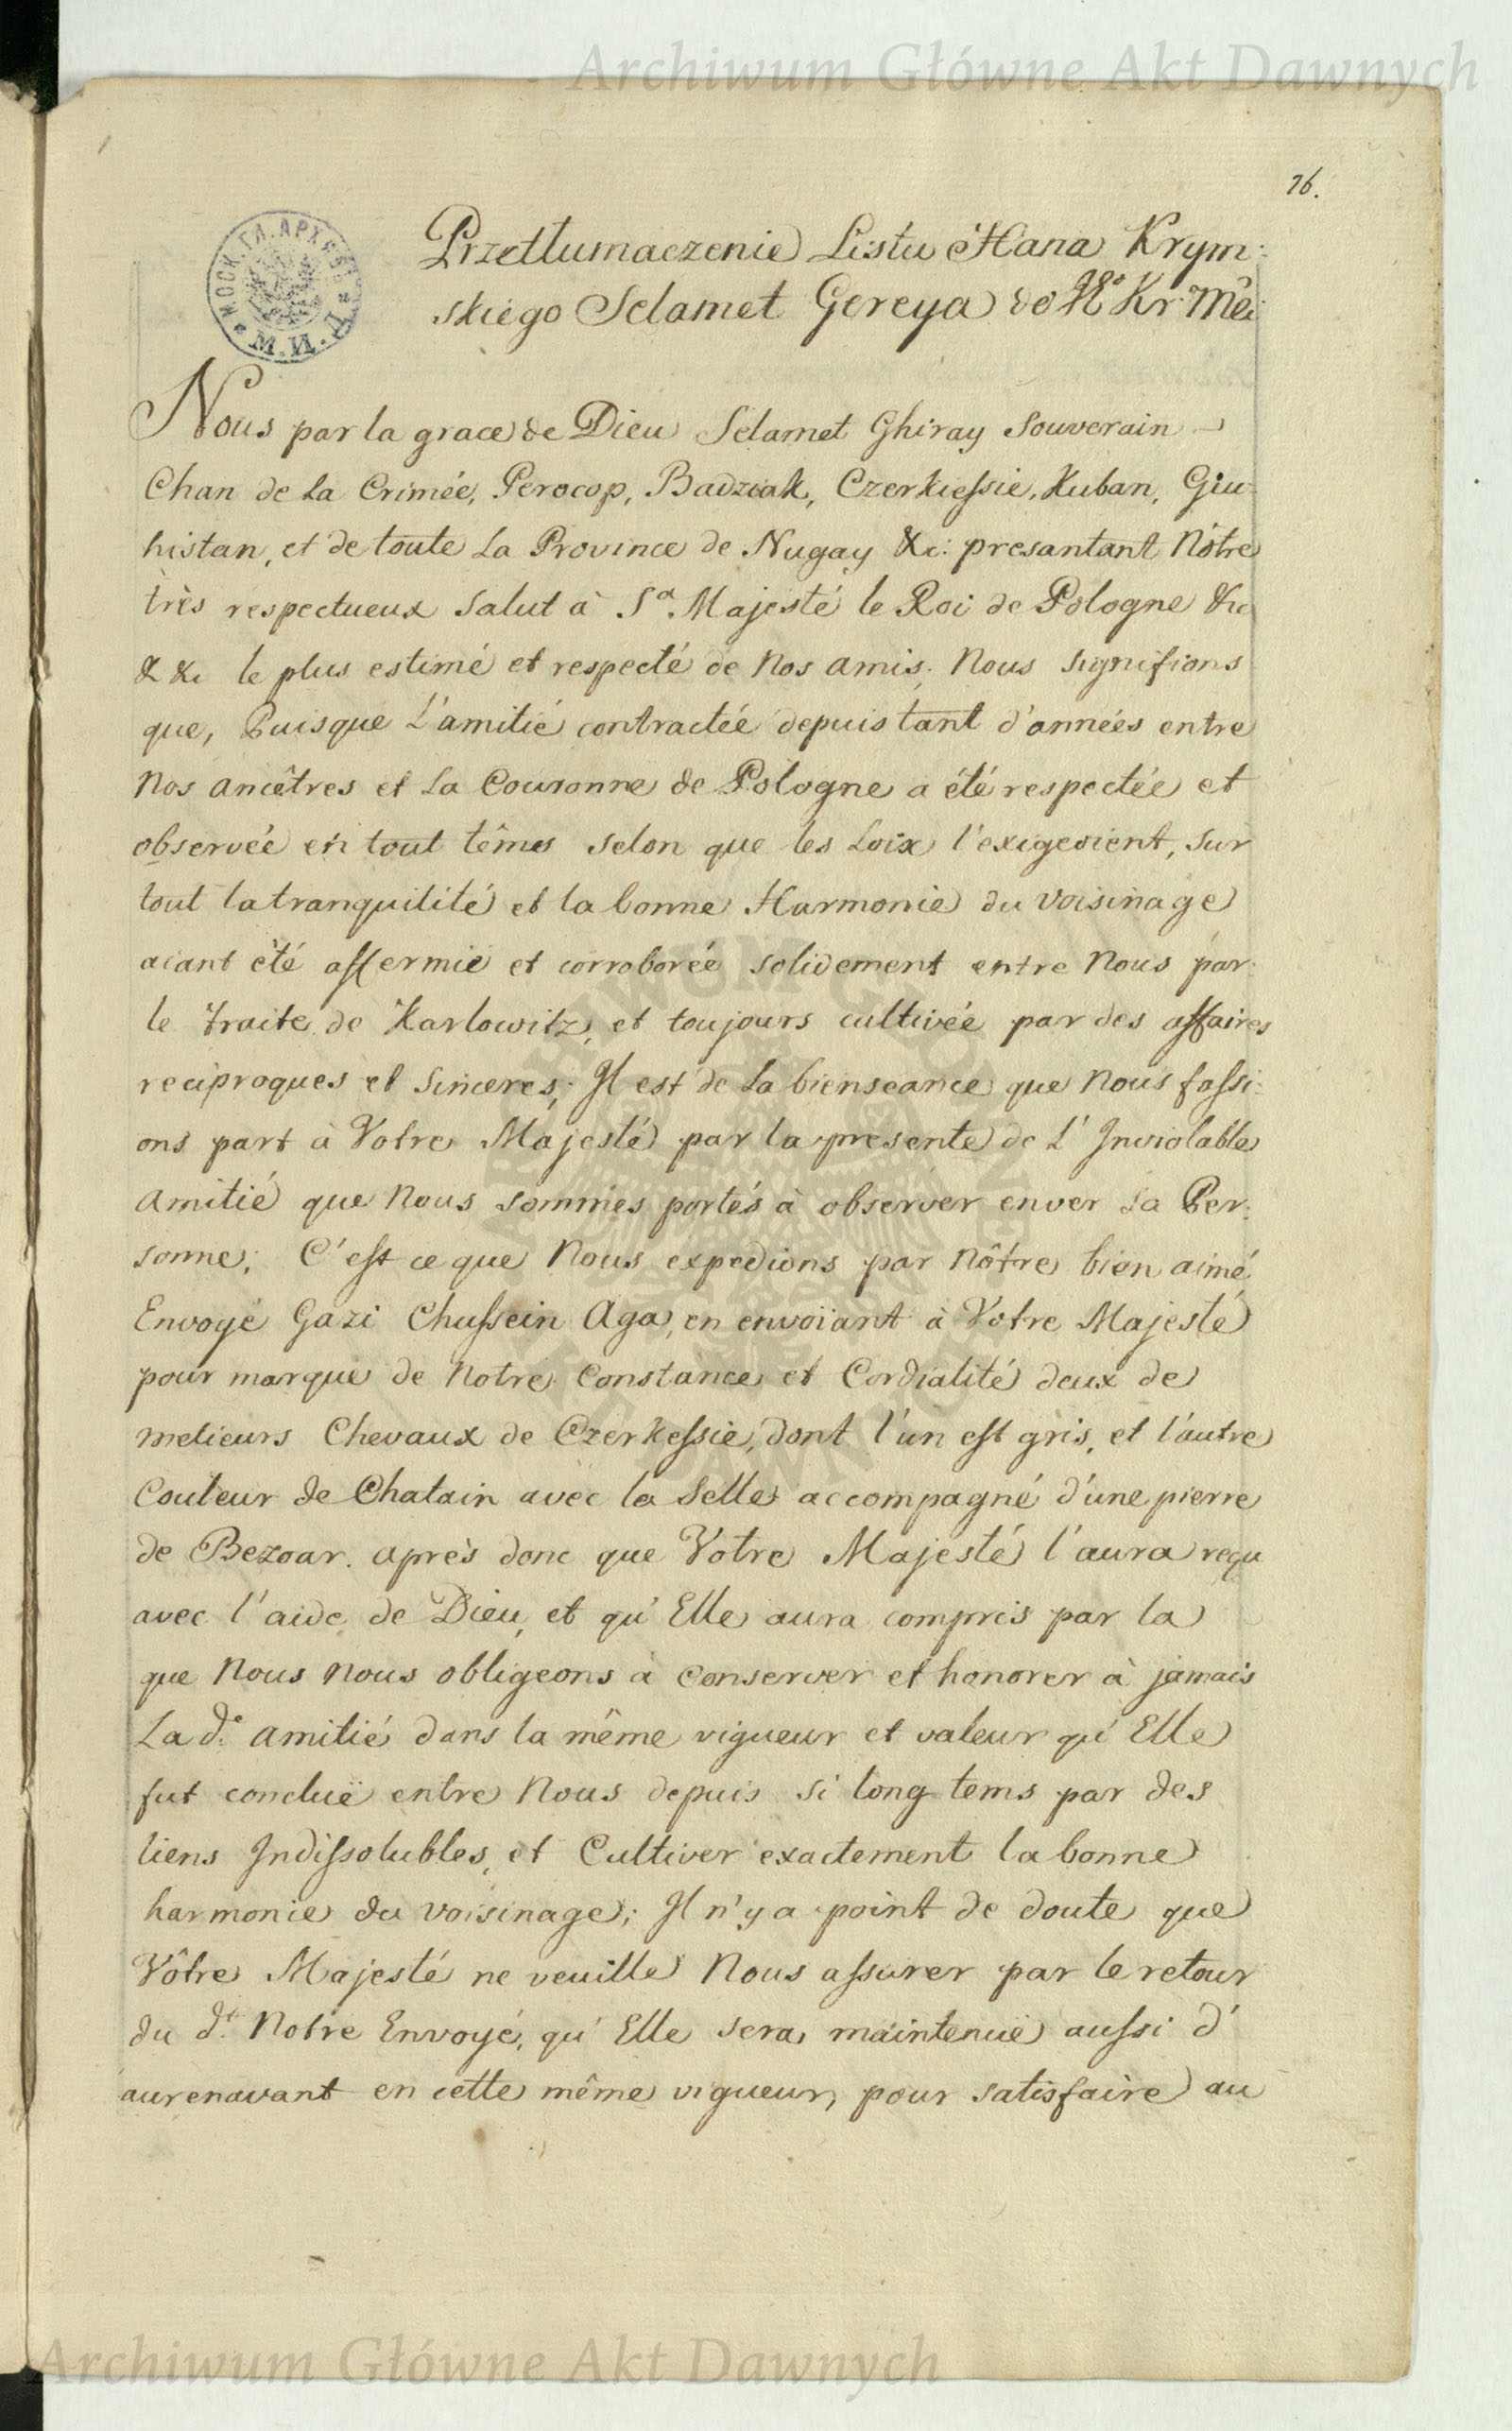 Archiwum Główne Akt Dawnych
76.
Przetłumaczenie Listu Hana Krym:
skiego Selamet Gereya do Kr Mci
Nous par la grace de Dieu Selamet Ghiray Souverain
Chan de la Crimée, Perocop, Badziak, Czerkiessie, Kuban, Giu
histan, et de toute la Province de Nugay &c: presantant Nôtre
très respectueux salut à Sa. Majesté le Roi de Pologne &c
& &c le plus estimé et respecté de Nos amis. Nous signifions
que, Puisque L'amitié contractée depuis tant d'années entre
Nos ancêtres et la Couronne de Pologne a été respectée et
observée en tout têms selon que les Loix l'exigeoient, sur
tout la tranquilité et la bonne Harmonie du voisinage
aiant été affermie et corroborée solidement entre Nous par
le traite de Karlowitz, et toujours cultivée par des affaires
reciproques et sinceres; Il est de la bienseance que Nous fassi:
ons part à Votre Majesté par la presente de L'Inviolable
amitié que Nous sommes portés à observer enver sa Per:
sonne; C'est ce que Nous expedions par Nôtre bien aimé
Envoyé Gazi Chussein Aga, en envoïant à Votre Majesté
pour marque de Notre Constance et Cordialité deux de
melieurs Chevaux de Czerkessie, dont l'un est gris, et l'autre
Couleur de Chatain avec la Selle accompagné d'une pierre
de Bezoar. après donc que Votre Majesté l'aura reçu
avec l'aide de Dieu, et qu'Elle aura compris par la
que Nous Nous obligeons à conserver et honorer à jamais
La de: amitié dans la même vigueur et valeur qu'Elle
fut concluë entre Nous depuis si long tems par des
liens Indissolubles, et Cultiver exactement la bonne
harmonie du voisinage; Il n'y a point de doute que
Vôtre Majesté ne veuille Nous assurer par le retour
du dt: Notre Envoyé, qu'Elle sera maintenuë aussi d'
aurenavant en cette même vigueur, pour satisfaire au
Archiwum Główne Akt Dawnych